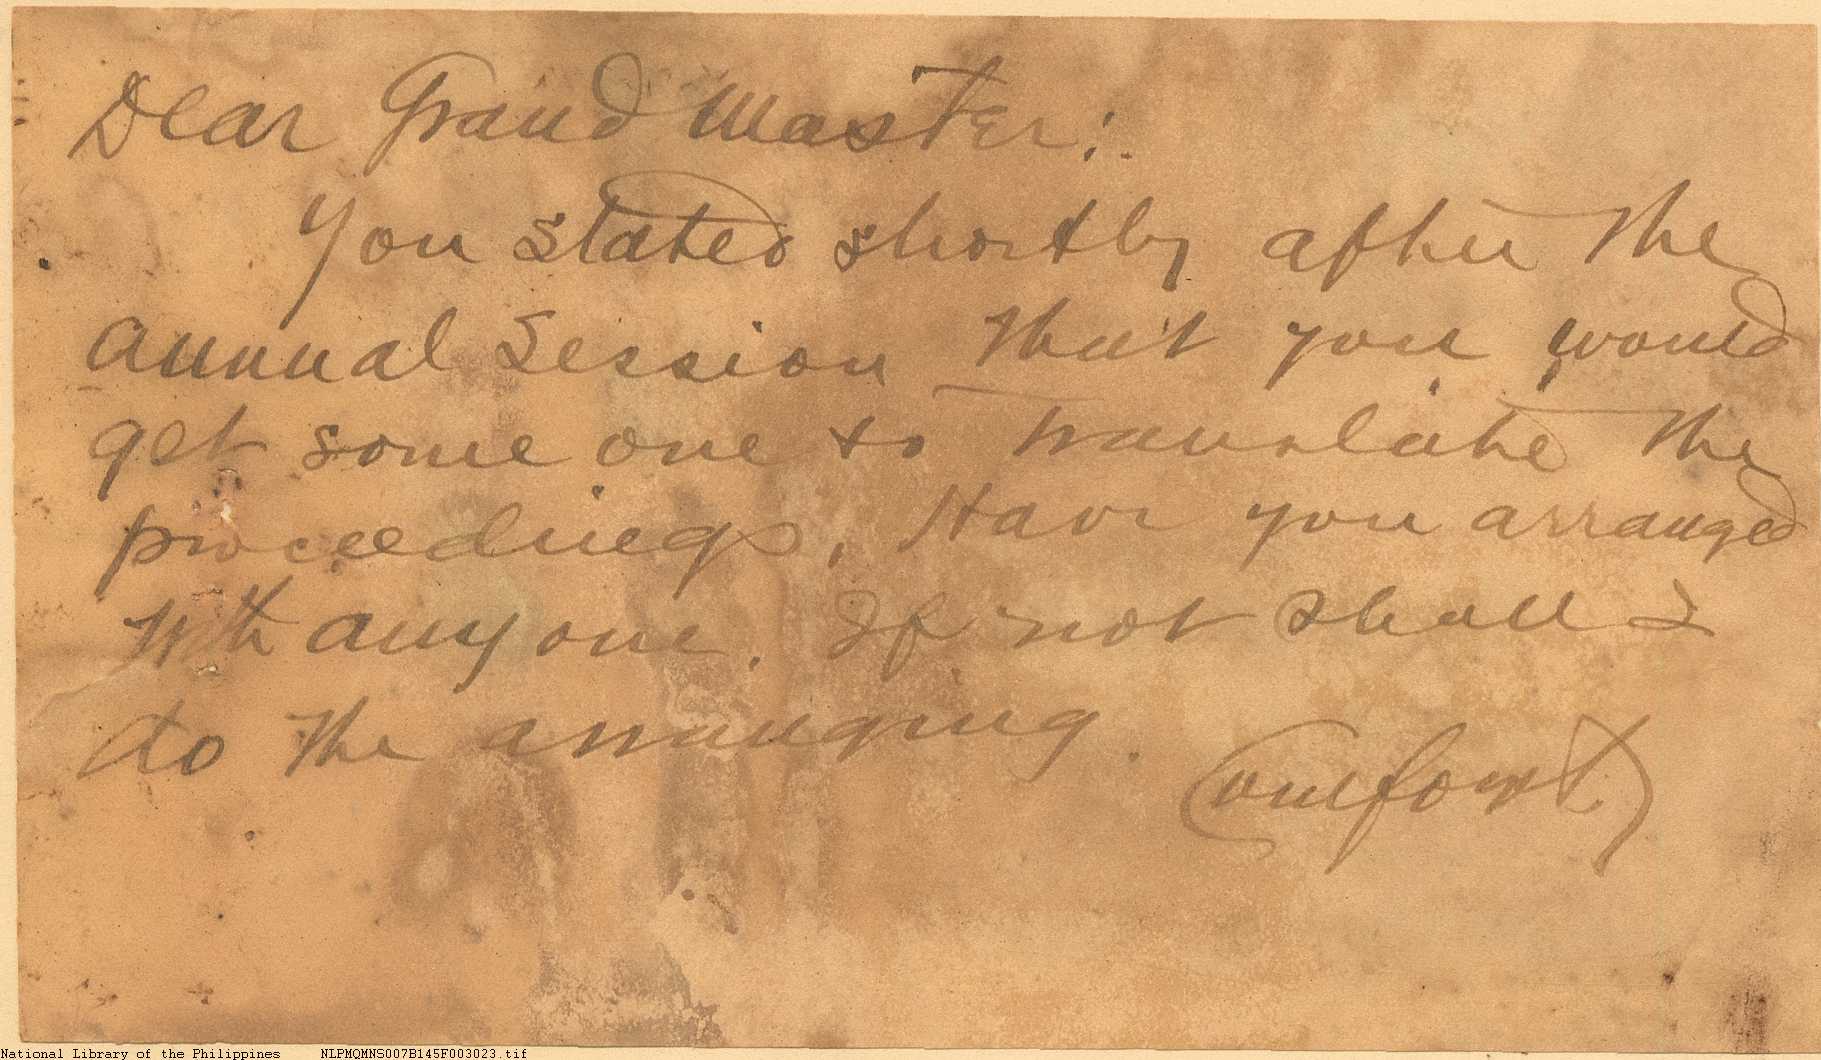 Dear Grand Master:
You stated shortly after the
annual session that you would
get some one to translate the
proceedings. Have you arranged
with anyone. If not shall I
do the arranging.
Comfort
National Library of the Philippines NLPMQMNS007B145F003023.tif